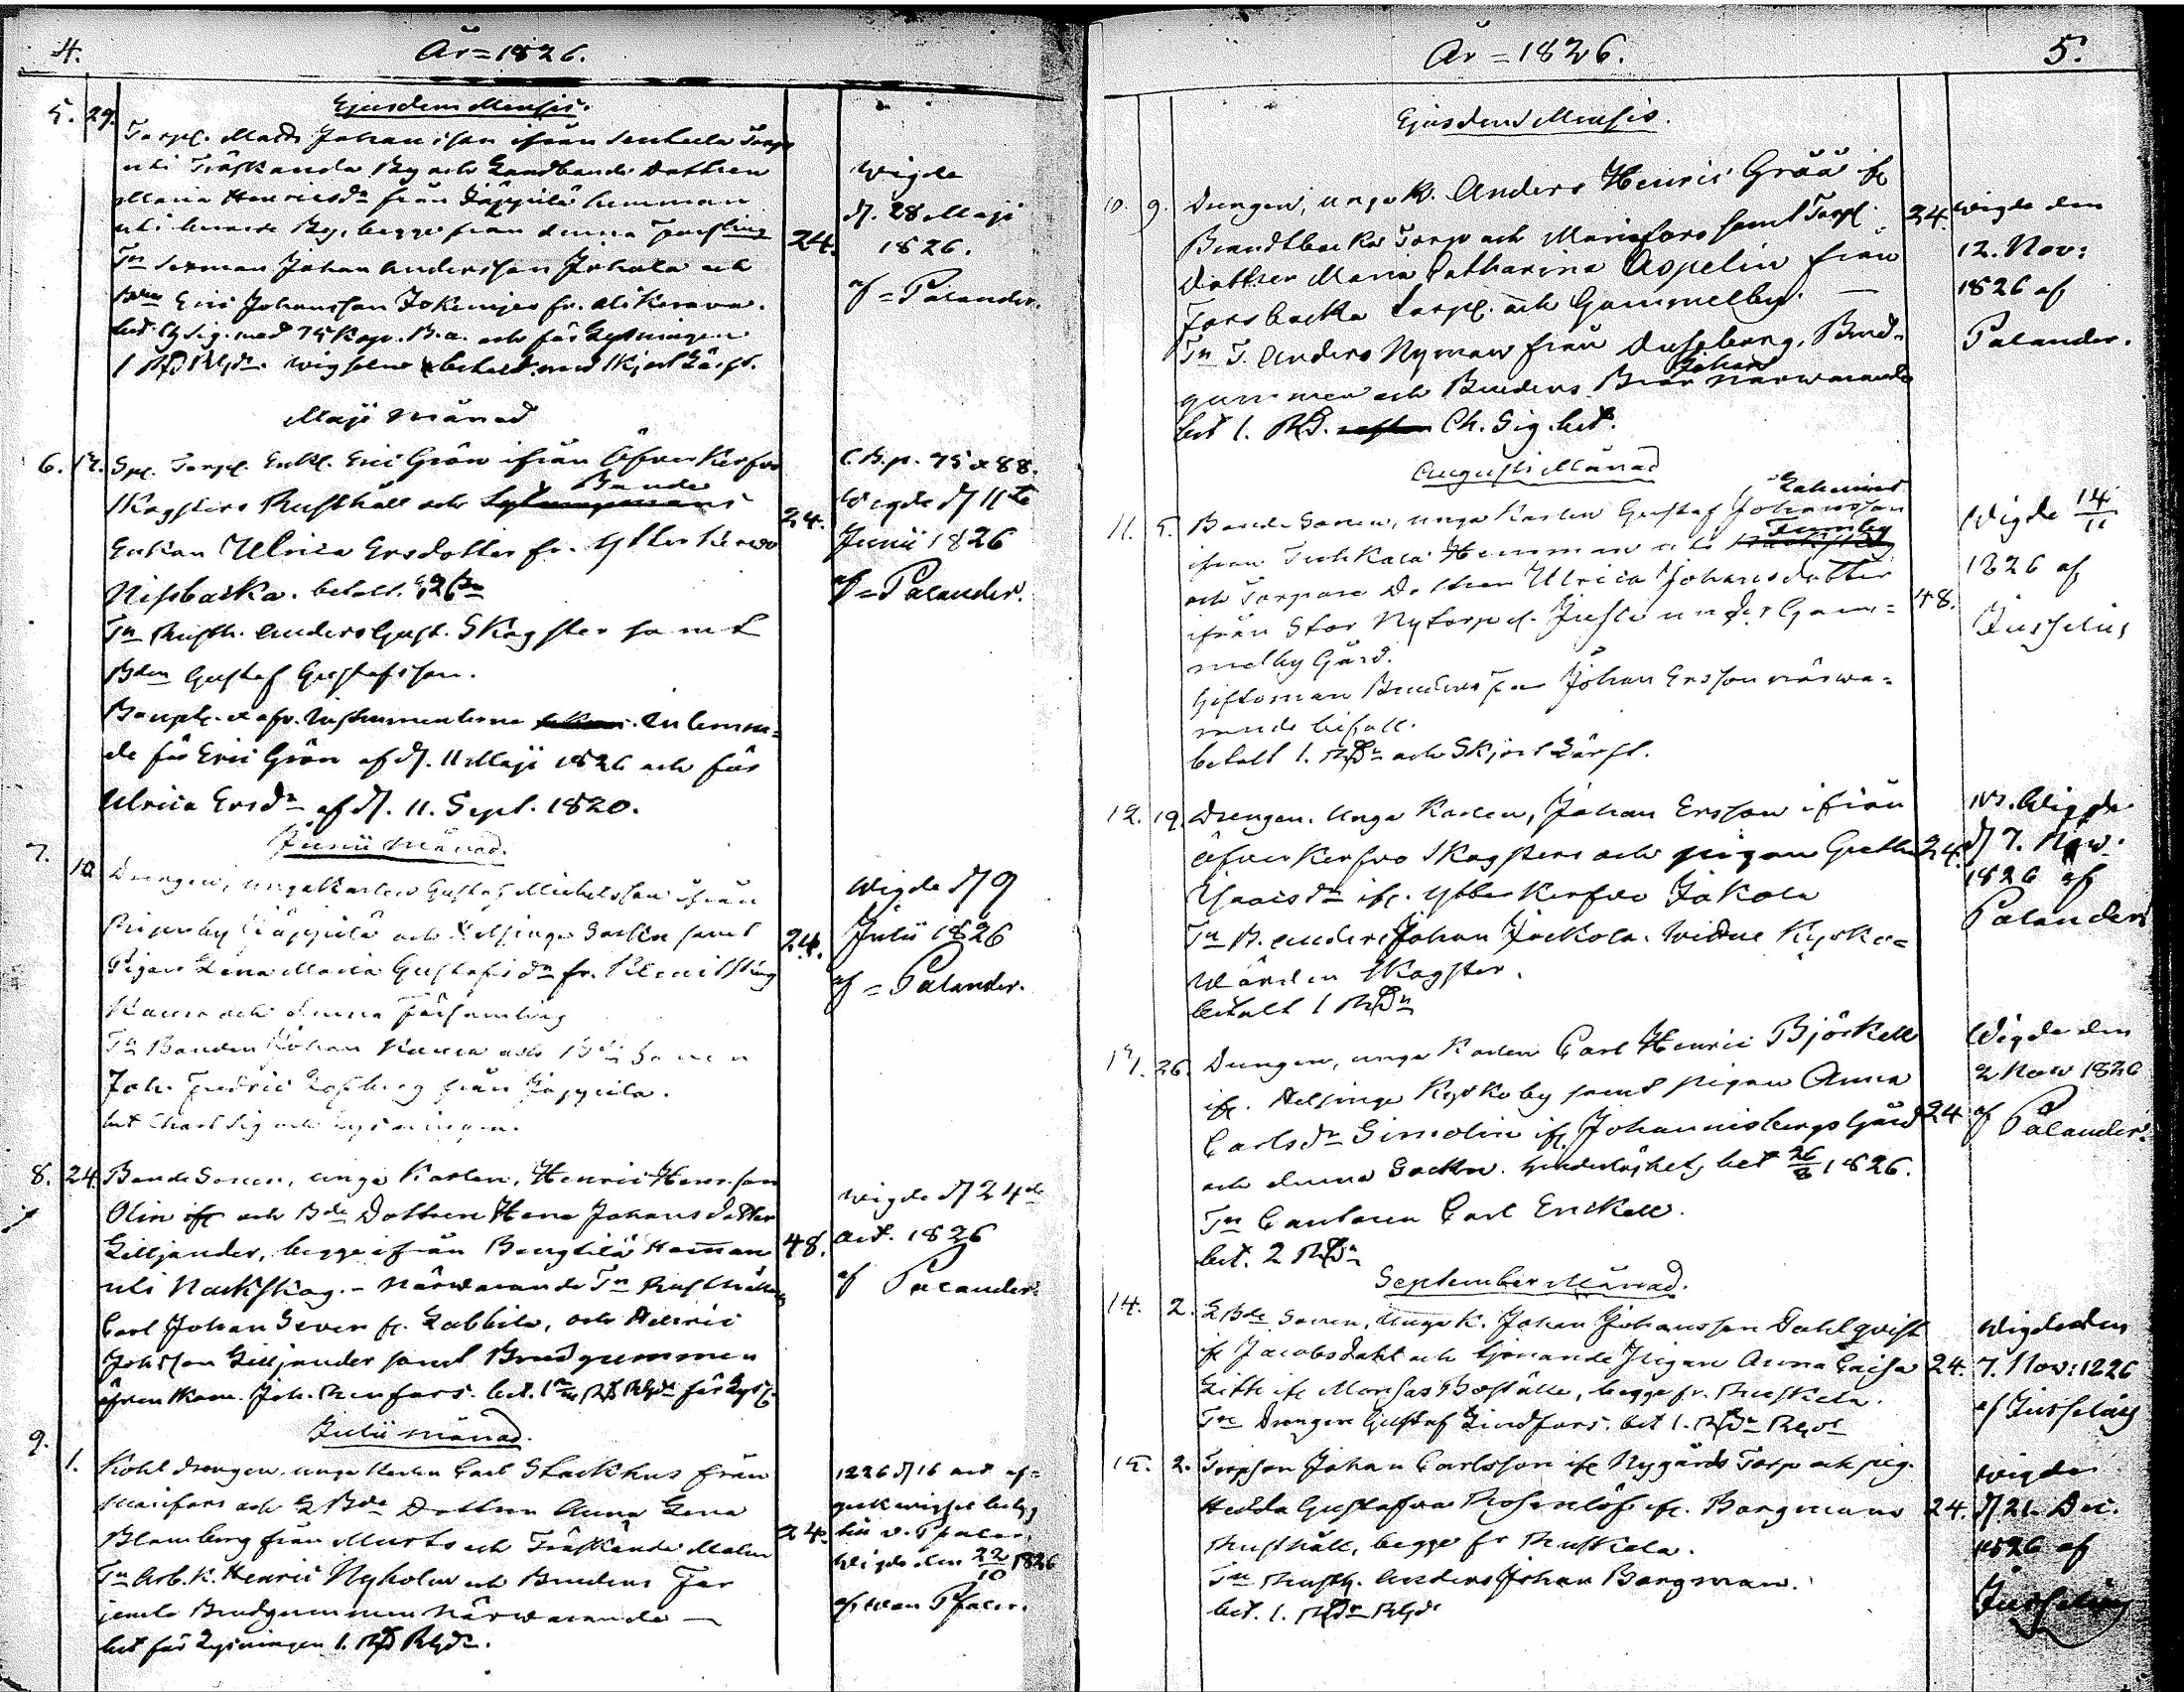 4.
År = 1826.
Ejusdem Mensis.
5. 29.
Torpl. Matts Johansson ifrån Torp
uti Träskända By och Landbonde Dottren
Maria Henricsdr från Jäppilä hemman
uti By, begge från denna Församling
24.
Tn Sexman Johan Andersson Jokela och
Bdn Eric Johansson fr. Ali Kerava.
bet. Ch. Sig. med 75 Kop. B.a. och för Lysningen
1 Rd Rgds. wigseln betald med Skjortlärft.
Wigde
d. 28 Maji
1826.
af = Palander.
Maji Månad
6. 14.
Spl. Torpl. Enkl. Eric Grön ifrån Öfver Kerfvo
Skogsters Rusthåll och Bonde
24.
Enkan Ulrica Ersdotter fr. Ytterkervo
Nissbacka. betalt.
Tn Rusth. Anders Gust. Skogster samt
Bdn Gustaf Gustafsson.
Bouptl. & afv. Instrumenterne inlemna-
de för Eric Grön af d. 11 Maji 1826 och för
Ulrica Ersdr af d. 11. Sept. 1820.
C.B.p. 75 & 88.
Wigde d 11te
Junii 1826
af = Palander.
Junii Månad.
7. 10
Drengen, unga Karlen Gustaf Michelsson ifrån
Jäppilä och Helsinge Socken samt
24.
Pigan Lena Maria Gustafsdr fr.
och denna Församling
Tn Bonden Johan och Bde Sonen
Joh. Fredric Löfberg från Jäppilä.
bet Chart Sig och Lysningen.
Wigde d 9
Julii 1826
af = Palander.
8. 24.
Bonde Sonen, unga Karlen, Henric Henr.son
Olin och Bde Dottren Hena Johansdotter
Lilljander, begge ifrån Bengtilä Heman
48.
uti Nackskog. - Närwarande Tn Rusthållaren
Carl Johan Seven fr. Labbila, och Henric
Johsson Lilljander samt Brudgummen
Joh. Renfors. bet. för Lysn.
Wigde d 24de
Oct. 1826
af Palander.
Julii Månad.
9. 1.
Kohl drengen, unga Karlen Carl Stackhus från
Mariefors och L Bde Dottren Anna Lena
Blomberg från Murts och Träskända Malm
24.
Tn Arb. K. Henric Nyholm och Brudens Far
jemte Brudgummen Närwarande —
bet för Lysningen 1. Rd Rgds.
1826 d 16 Oct af-
gick wigsel betyg
till v. Pfaler.
Wigde den 22/10 1826
af von Pfaler.
År = 1826.
5.
Ejusdem Mensis.
10. 9.
Drengen, unga K. Anders Henric Gråå ifr
24.
Brandtbacka Torp och Mariefors samt Torpl.
Dottren Maria Catharina Aspelin från
Forsbacka Torpl. och Gammelby. —
Tn T. Anders Nyman från Duseborg, Brud-
gummen och Brudens Bror Johan närwarande
bet 1. Rd. Ch. Sig. bet.
Wigde den
12. Nov:
1826 af
Palander.
Augusti Månad
11. 5.
Bonde Sonen, unga Karlen Gustaf Johansson
ifrån Tuskala Hemman uti Tomby
och Torpare Dottren Ulrica Johansdotter
48.
ifrån Stor Nytorp under Gam-
melby Gård.
Giftoman Brudens Far Johan Ersson närwa-
rande bifall.
betalt 1. Rdr och Skjortlärft.
Wigde 14/11
1826 af
Jusselius
12. 19.
Drengen. Unga Karlen, Johan Ersson ifrån
Öfver Kerfvo Skogsters och pigan Gretha
24.
Isaacsdr ifr. Ytterkerfvo Jokela
Tn B. Anders Johan Jockola. Widue Kyrko-
wärden Skogster.
betalt 1 Rdr
Wigde
d 7. Now.
1826 af
Palander
13. 26.
Drengen, unga Karlen Carl Henric Björkell
ifr. Helsinge Kyrkoby samt pigan Anna
Carlsdr Simolin ifr. Johannisbergs Gård
24
och denna Socken. hinderlöshet, bet 26/8 1826.
Tn Cantorn Carl Enckell.
bet. 2 Rdr
Wigde den
2 Now 1826
af Palander.
September Månad.
14. 2.
L Bde Sonen, Unga K. Johan Johansson Dahlqvist
ifr Jacobsdahl och tjenande Pigan Anna Caisa
24
Lith ifr Monsas Boställe, begge fr. Ruskela.
Tn Drengen Gustaf Lindfors. bet 1. Rdr Rgds
Wigde den
7. Nov: 1826
af Jusselius
15. 2.
Torpson Johan Carlsson ifr Nygårds Torp och pig.
Hedda Gustafva Rosenlöf ifr. Borgmans
24.
Rusthåll, begge fr Ruskela.
Tn Rusth. Anders Johan Borgman.
bet. 1. Rdr Rgds
Wigde
d 21. Dec.
1826 af
Jusselius